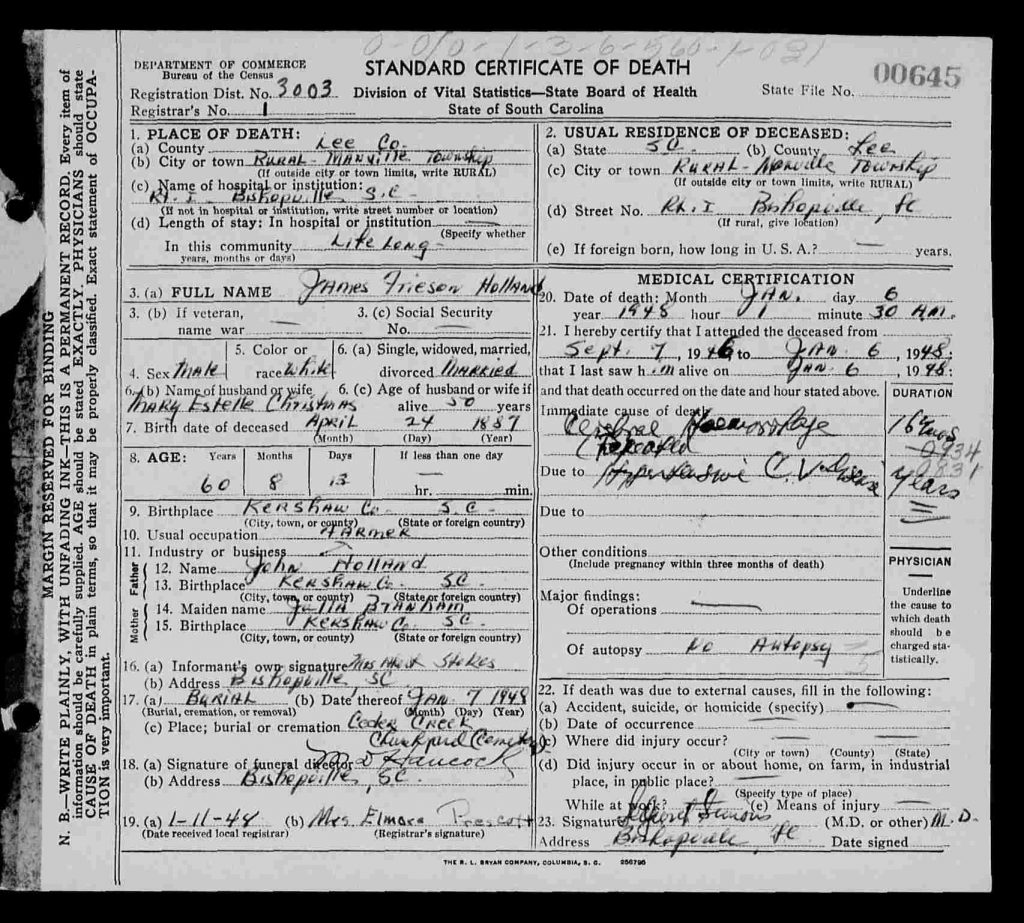 0-0/0-1-3-6-560-1-031
DEPARTMENT OF COMMERCE
Bureau of the Census
STANDARD CERTIFICATE OF DEATH
00645
Registration Dist. No. 3003
Division of Vital Statistics—State Board of Health
State File No.
Registrar's No. 1
State of South Carolina
1. PLACE OF DEATH:
(a) County Lee Co.
(b) City or town RURAL - MANVILLE Township
(If outside city or town limits, write RURAL)
(c) Name of hospital or institution:
Rt. I - Bishopville, S.C
(If not in hospital or institution, write street number or location)
(d) Length of stay: In hospital or institution —
(Specify whether
In this community Life Long -
years, months or days)
2. USUAL RESIDENCE OF DECEASED:
(a) State S.C. (b) County Lee
(c) City or town RURAL - Manville Township
(If outside city or town limits, write RURAL)
(d) Street No. Rt. I Bishopville, SC
(If rural, give location)
(e) If foreign born, how long in U. S. A.? — years.
3. (a) FULL NAME James Frieson Holland
3. (b) If veteran,
name war —
3. (c) Social Security
No. —
4. Sex Male
5. Color or
race White
6. (a) Single, widowed, married,
divorced MARRIED
6. (b) Name of husband or wife
Mary Estelle Christmas
6. (c) Age of husband or wife if
alive 50 years
7. Birth date of deceased APRIL 24 1887
(Month) (Day) (Year)
8. AGE: Years Months Days If less than one day
60 8 13 — hr. min.
9. Birthplace KERSHAW Co. S.C.
(City, town, or county) (State or foreign country)
10. Usual occupation FARMER
11. Industry or business
Father
12. Name John Holland
13. Birthplace KERSHAW Co. SC.
(City, town, or county) (State or foreign country)
Mother
14. Maiden name Julia Branham
15. Birthplace KERSHAW Co. SC.
(City, town, or county) (State or foreign country)
16. (a) Informant's own signature Mrs Stokes
(b) Address Bishopville, SC
17. (a) BURIAL (b) Date thereof JAN. 7 1948
(Burial, cremation, or removal) (Month) (Day) (Year)
(c) Place; burial or cremation Cedar Creek
Churchyard Cemetery
18. (a) Signature of funeral director D Hancock
(b) Address Bishopville, SC.
19. (a) 1-11-48 (b) Mrs. Elmora Prescott
(Date received local registrar) (Registrar's signature)
MEDICAL CERTIFICATION
20. Date of death: Month JAN. day 6
year 1948 hour 1 minute 30 A.M.
21. I hereby certify that I attended the deceased from
Sept. 7, 1946 to JAN. 6, 1948;
that I last saw him alive on JAN. 6, 1948;
and that death occurred on the date and hour stated above.
DURATION
Immediate cause of death
Cerebral Haemorrhage
(repeated
Due to Hypertensive C. V. Disease years
Due to
Other conditions
(Include pregnancy within three months of death)
PHYSICIAN
Major findings:
Of operations —
Of autopsy No Autopsy
Underline
the cause to
which death
should be
charged sta-
tistically.
22. If death was due to external causes, fill in the following:
(a) Accident, suicide, or homicide (specify) —
(b) Date of occurrence —
(c) Where did injury occur? —
(City or town) (County) (State)
(d) Did injury occur in or about home, on farm, in industrial
place, in public place? —
(Specify type of place)
While at work? (e) Means of injury —
23. Signature (M.D. or other) M.D.
Address Bishopville, SC Date signed
THE R. L. BRYAN COMPANY, COLUMBIA, S. C. 256795
MARGIN RESERVED FOR BINDING
N. B.—WRITE PLAINLY, WITH UNFADING INK—THIS IS A PERMANENT RECORD. Every item of
information should be carefully supplied. AGE should be stated EXACTLY. PHYSICIANS should state
CAUSE OF DEATH in plain terms, so that it may be properly classified. Exact statement of OCCUPA-
TION is very important.